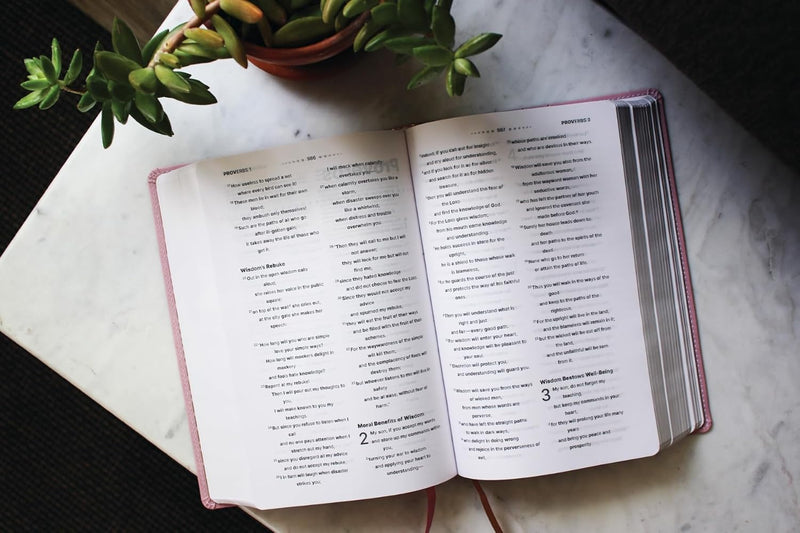 PROVERBS 1
586
17 How useless to spread a net
where every bird can see it!
18 These men lie in wait for their own
blood;
they ambush only themselves!
19 Such are the paths of all who go
after ill-gotten gain;
it takes away the life of those who
get it.
Wisdom's Rebuke
20 Out in the open wisdom calls
aloud,
she raises her voice in the public
square;
21 on top of the wall she cries out,
at the city gate she makes her
speech:
22 "How long will you who are simple
love your simple ways?
How long will mockers delight in
mockery
and fools hate knowledge?
23 Repent at my rebuke!
Then I will pour out my thoughts to
you,
I will make known to you my
teachings.
24 But since you refuse to listen when I
call
and no one pays attention when I
stretch out my hand,
25 since you disregard all my advice
and do not accept my rebuke,
26 I in turn will laugh when disaster
strikes you;
I will mock when calamity
overtakes you—
27 when calamity overtakes you like a
storm,
when disaster sweeps over you
like a whirlwind,
when distress and trouble
overwhelm you.
28 "Then they will call to me but I will
not answer;
they will look for me but will not
find me,
29 since they hated knowledge
and did not choose to fear the LORD.
30 Since they would not accept my
advice
and spurned my rebuke,
31 they will eat the fruit of their ways
and be filled with the fruit of their
schemes.
32 For the waywardness of the simple
will kill them,
and the complacency of fools will
destroy them;
33 but whoever listens to me will live in
safety
and be at ease, without fear of
harm."
Moral Benefits of Wisdom
2 My son, if you accept my words
and store up my commands within
you,
2 turning your ear to wisdom
and applying your heart to
understanding—
587
PROVERBS 3
3 indeed, if you call out for insight
and cry aloud for understanding,
4 and if you look for it as for silver
and search for it as for hidden
treasure,
5 then you will understand the fear of
the LORD
and find the knowledge of God.
6 For the LORD gives wisdom;
from his mouth come knowledge
and understanding.
7 He holds success in store for the
upright,
he is a shield to those whose walk
is blameless,
8 for he guards the course of the just
and protects the way of his faithful
ones.
9 Then you will understand what is
right and just
and fair—every good path.
10 For wisdom will enter your heart,
and knowledge will be pleasant to
your soul.
11 Discretion will protect you,
and understanding will guard you.
12 Wisdom will save you from the ways
of wicked men,
from men whose words are
perverse,
13 who have left the straight paths
to walk in dark ways,
14 who delight in doing wrong
and rejoice in the perverseness of
evil,
15 whose paths are crooked
and who are devious in their ways.
16 Wisdom will save you also from the
adulterous woman,
from the wayward woman with her
seductive words,
17 who has left the partner of her youth
and ignored the covenant she
made before God.
18 Surely her house leads down to
death
and her paths to the spirits of the
dead.
19 None who go to her return
or attain the paths of life.
20 Thus you will walk in the ways of the
good
and keep to the paths of the
righteous.
21 For the upright will live in the land,
and the blameless will remain in it;
22 but the wicked will be cut off from
the land,
and the unfaithful will be torn
from it.
Wisdom Bestows Well-Being
3 My son, do not forget my
teaching,
but keep my commands in your
heart,
2 for they will prolong your life many
years
and bring you peace and
prosperity.